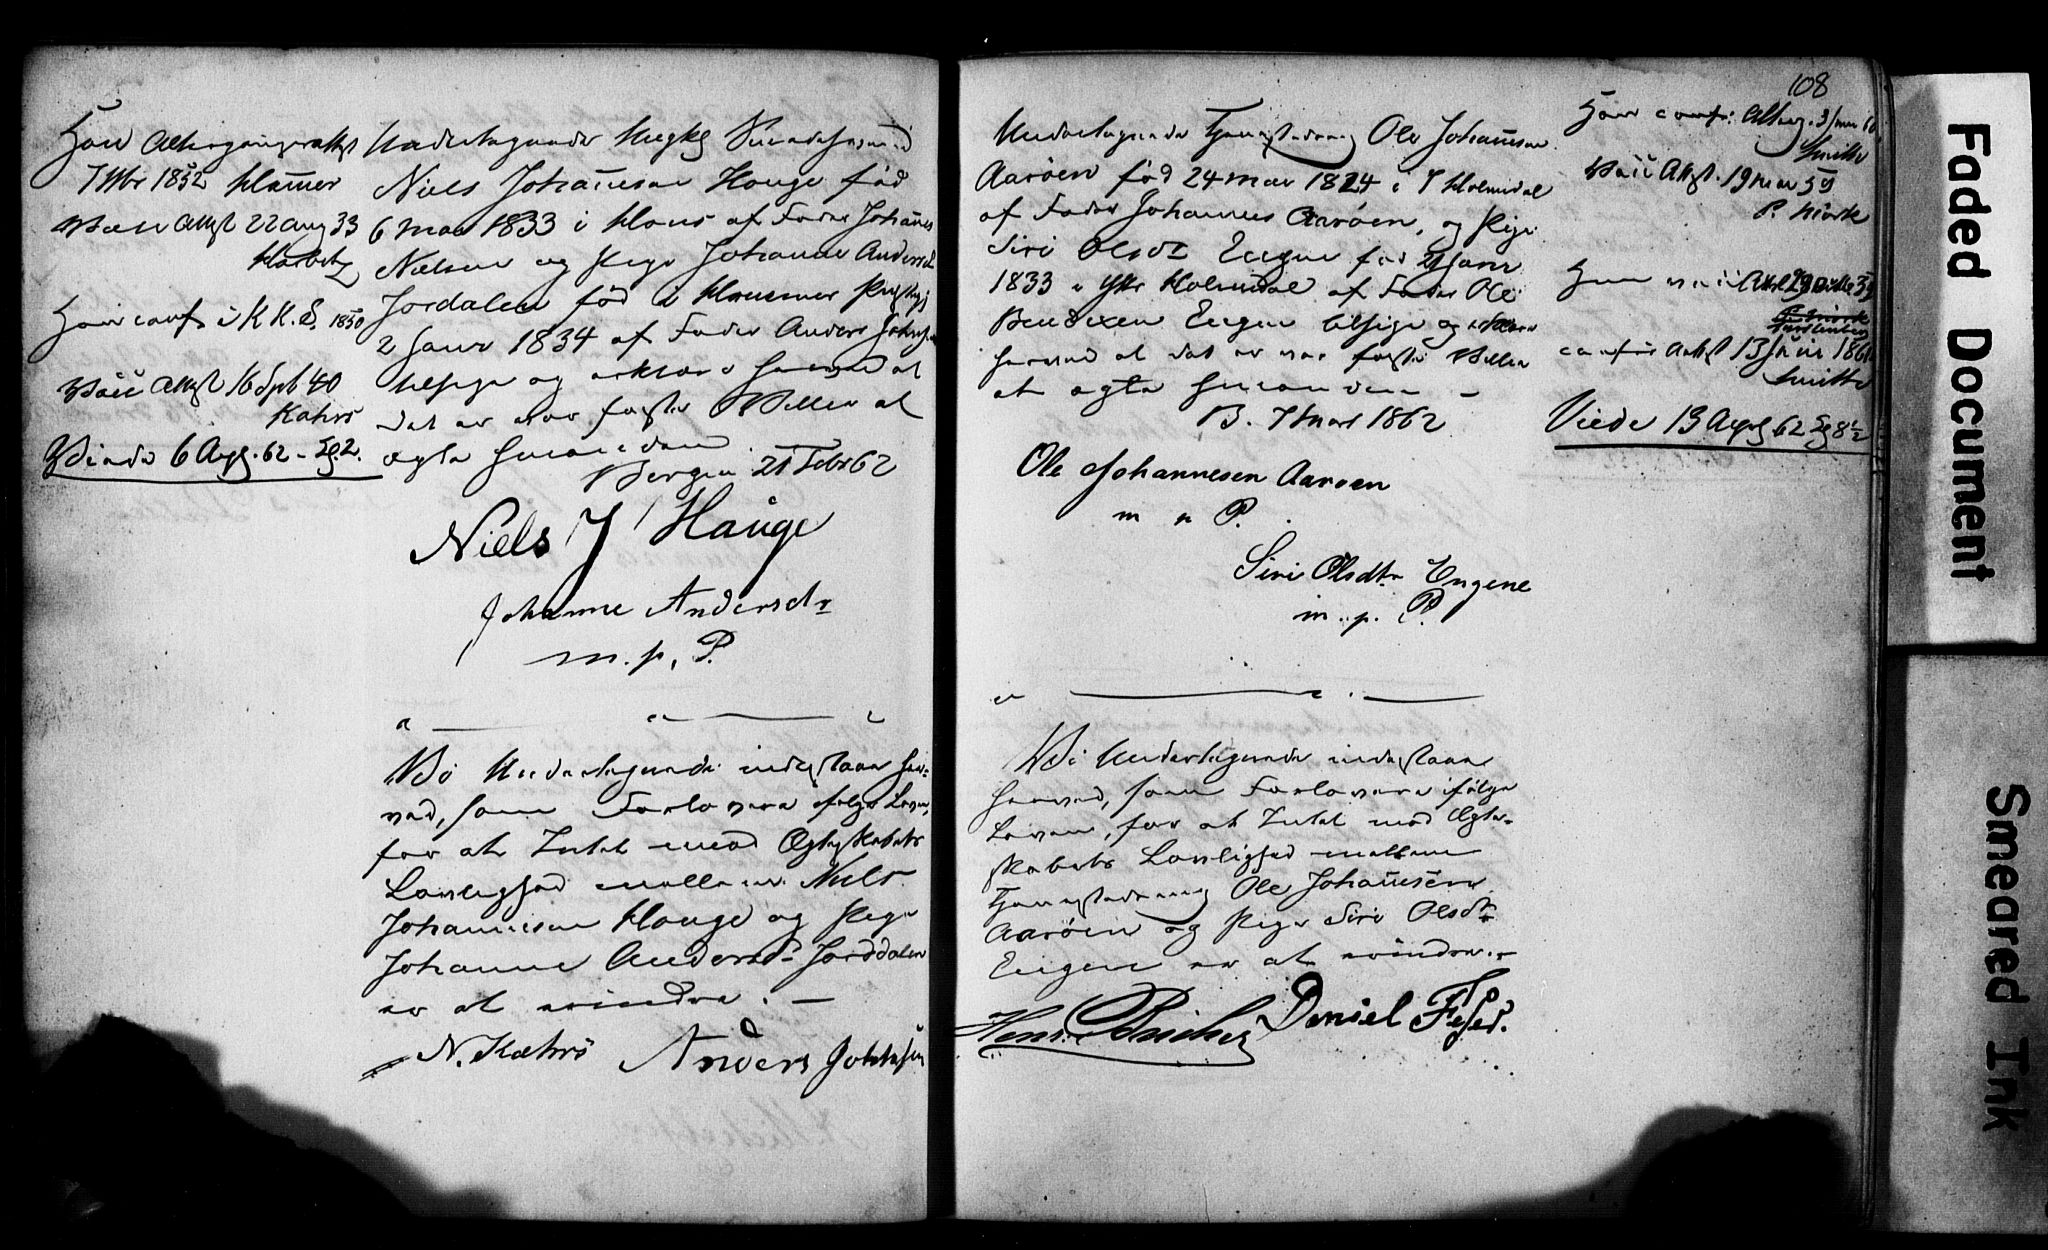 Han Altergangsattest
7 Mbr 1852 Hammer
Vacc Attest 22 Aug 33
Han conf i K K. 1850
Vacc Attest 16 Spt 40
Kahrs
Viede 6 Apr. 62 - Kl. 2.
Undertegnede Ungkl
Niels Johannesen Houge fød
6 Mai 1833 i Hous af Fader Johannes
Nielsen og Pige Johanne Andersd
Jordalen fød i Hammer Præstegj
2 Janr 1834 af Fader Anders Johnsen
tilsige og erklære herved at
det er vor faste Villie at
ægte hinanden
Bergen 21 Febr 62
Niels J Hauge
Johanne Andersdr
m. p. P.
Vi Undertegnede indestaar her-
ved, som Forlovere ifølge Loven,
for at Intet mod Ægteskabets
Lovlighed mellem Niels
Johannesen Houge og Pige
Johanne Andersd- Jorddalen
er at erindre. —
N. Kahrs Anders Johnsen
108
Undertegnede Tjenestedreng Ole Johannesen
Aarøen fød 24 Mai 1824 i Y Holmedal
af Fader Johannes Aarøen, og Pige
Siri Olsdt Engene fød Janr
1833 i Ytr Holmedal af Fader Ole
Bendixen Engen tilsige og erklære
herved at det er vor faste Villie
at ægte hinanden —
B. 7 Mars 1862
Ole Johannesen Aarøen
m p P.
Siri Olsdtr Engene
m. p. P.
Vi Undertegnede indestaar
herved, som Forlovere ifølge
Loven, for at Intet mod Ægte-
skabets Lovlighed mellem
Tjenestedreng Ole Johannesen
Aarøen og Pige Siri Olsdtr
Engene er at erindre. -
Daniel
Han conf: Alterg. 3/
Smitt
Vacc Attst. 19 Mai 59
P. Kiørk
Hun vacc Attst 29
conf: Attst 13 Juni 186
Smitt
Viede 13 Apr 62 Kl 8 1/2
Faded Document
Smeared Ink